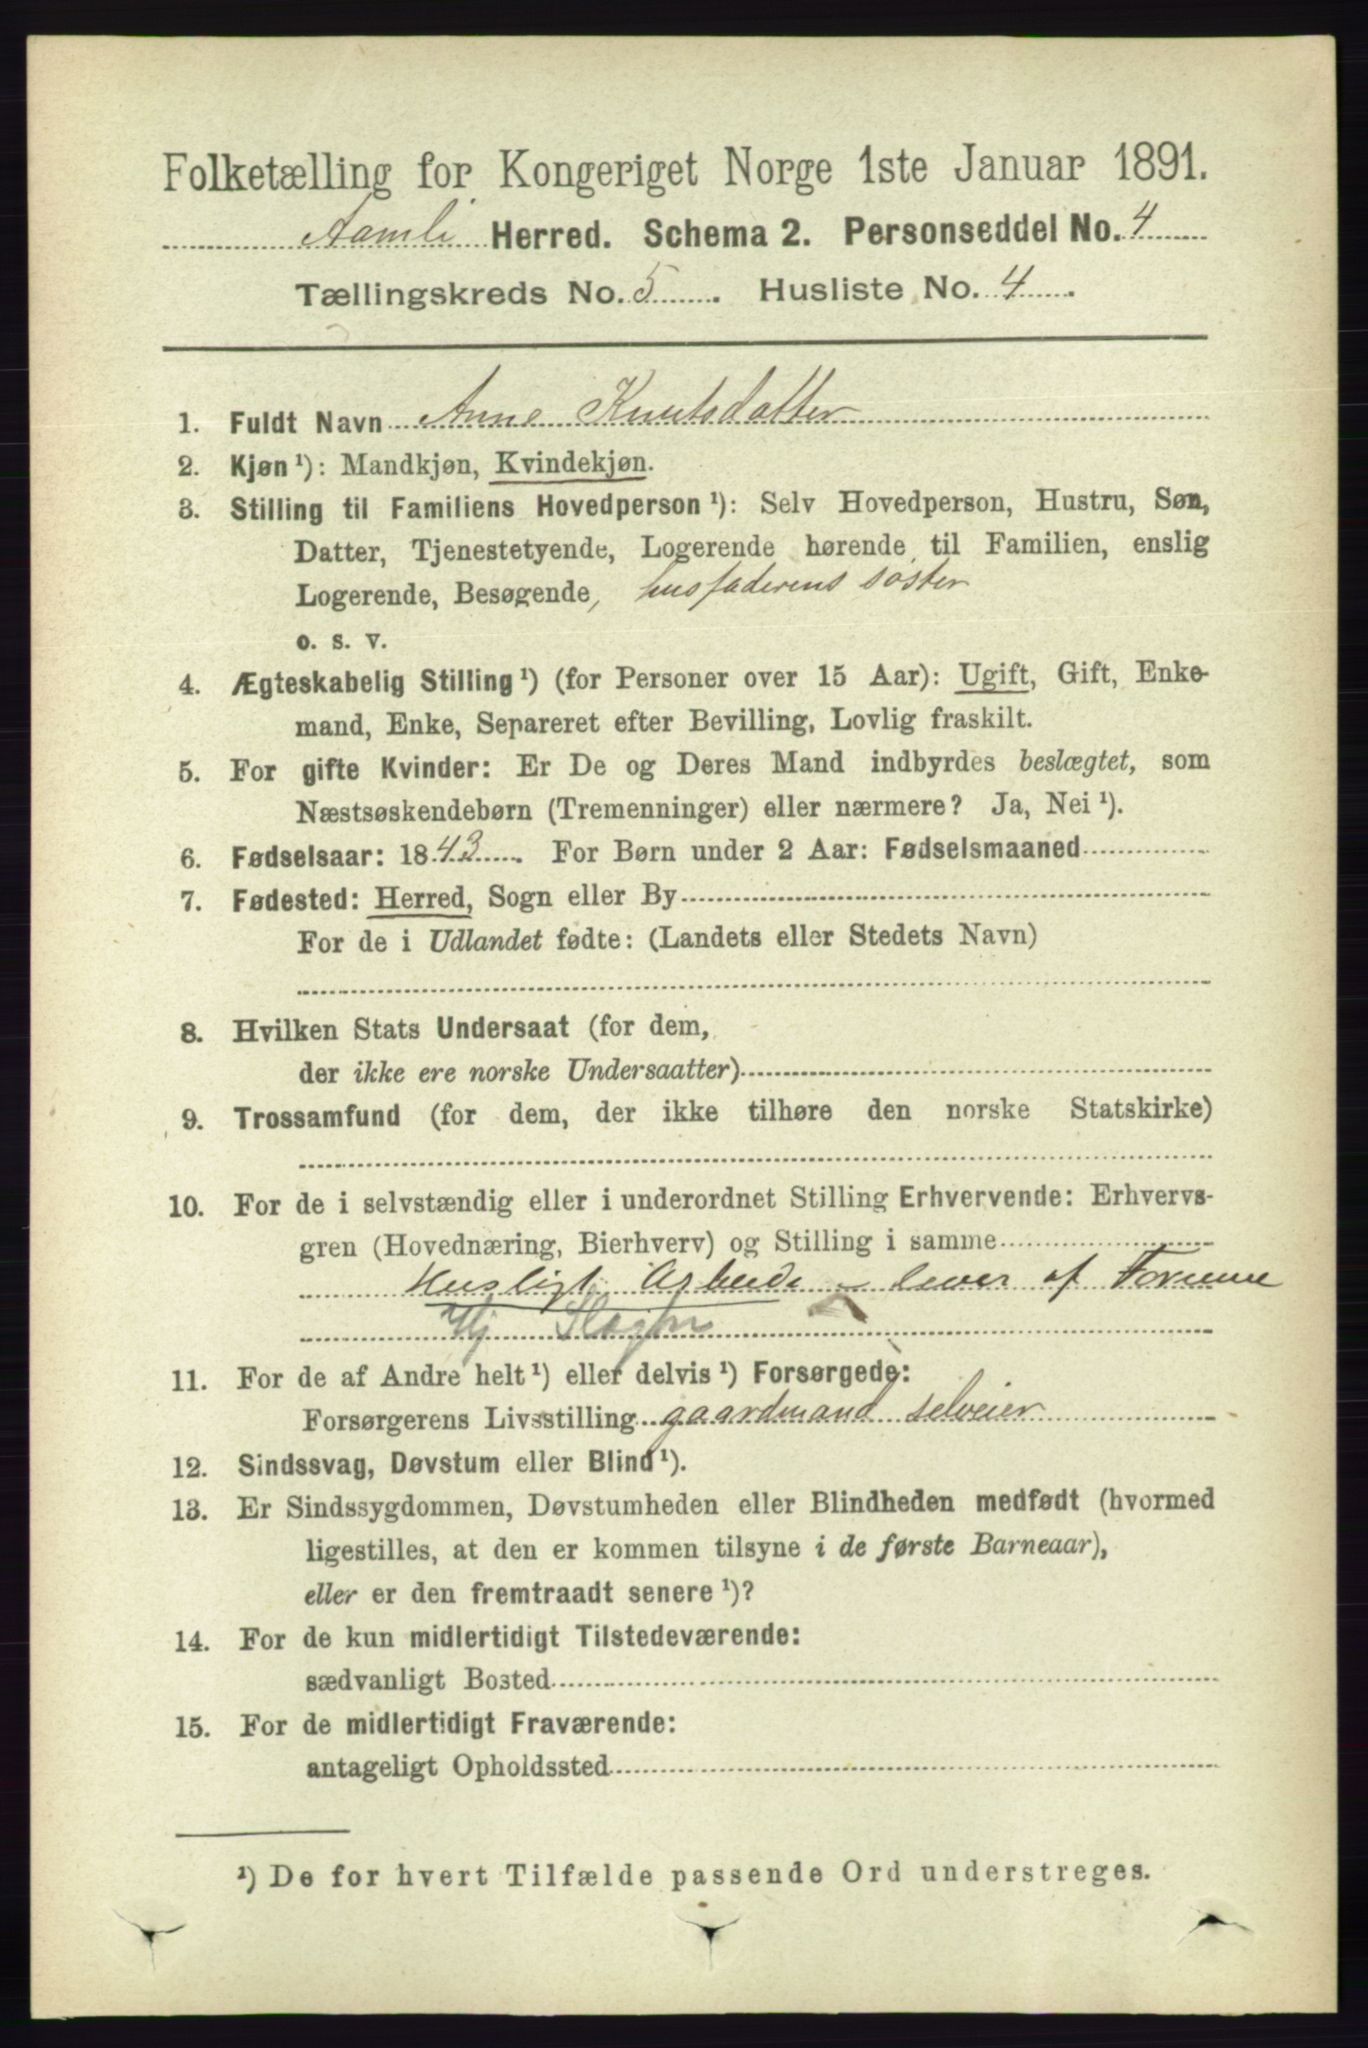 Folketælling for Kongeriget Norge 1ste Januar 1891.
Aamli Herred. Schema 2. Personseddel No. 4
Tællingskreds No. 5. Husliste No. 4.
1. Fuldt Navn Anne Knutsdatter
2. Kjøn ¹): Mandkjøn, Kvindekjøn.
3. Stilling til Familiens Hovedperson ¹): Selv Hovedperson, Hustru, Søn,
Datter, Tjenestetyende, Logerende hørende til Familien, enslig
Logerende, Besøgende, husfaderens søster
o. s. v.
4. Ægteskabelig Stilling ¹) (for Personer over 15 Aar): Ugift, Gift, Enke-
mand, Enke, Separeret efter Bevilling, Lovlig fraskilt.
5. For gifte Kvinder: Er De og Deres Mand indbyrdes beslægtet, som
Næstsøskendebørn (Tremenninger) eller nærmere? Ja, Nei ¹).
6. Fødselsaar: 1843. For Børn under 2 Aar: Fødselsmaaned
7. Fødested: Herred, Sogn eller By
For de i Udlandet fødte: (Landets eller Stedets Navn)
8. Hvilken Stats Undersaat (for dem,
der ikke ere norske Undersaatter)
9. Trossamfund (for dem, der ikke tilhøre den norske Statskirke)
10. For de i selvstændig eller i underordnet Stilling Erhvervende: Erhvervs-
gren (Hovednæring, Bierhverv) og Stilling i samme
Husligt Arbeide - lever af Formue
Hj
11. For de af Andre helt ¹) eller delvis ¹) Forsørgede:
Forsørgerens Livsstilling gaardmand selveier
12. Sindssvag, Døvstum eller Blind ¹).
13. Er Sindssygdommen, Døvstumheden eller Blindheden medfødt (hvormed
ligestilles, at den er kommen tilsyne i de første Barneaar),
eller er den fremtraadt senere ¹)?
14. For de kun midlertidigt Tilstedeværende:
sædvanligt Bosted
15. For de midlertidigt Fraværende:
antageligt Opholdssted
¹) De for hvert Tilfælde passende Ord understreges.